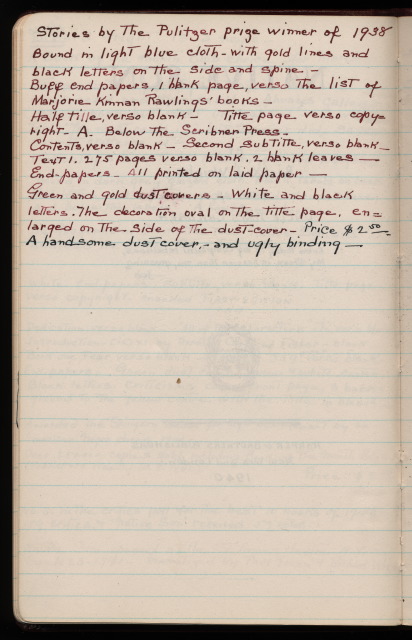 Stories by The Pulitzer prize winner of 1938
Bound in light blue cloth - with gold lines and
black letters on the side and spine -
Buff End papers, 1 blank page, verso the list of
Marjorie Kinnan Rawlings' books -
Half title, verso blank - Title page verso copy=
right - A. Below the Scribner Press -
Contents, verso blank - Second subtitle, verso blank -
Text 1. 275 pages verso blank. 2 blank leaves -
End-papers - All printed on laid paper -
Green and gold dust covers - White and black
letters. The decoration oval on the title page, en=
larged on the side of the dust-cover - Price $2.50 -
A handsome dust cover, - and ugly binding -